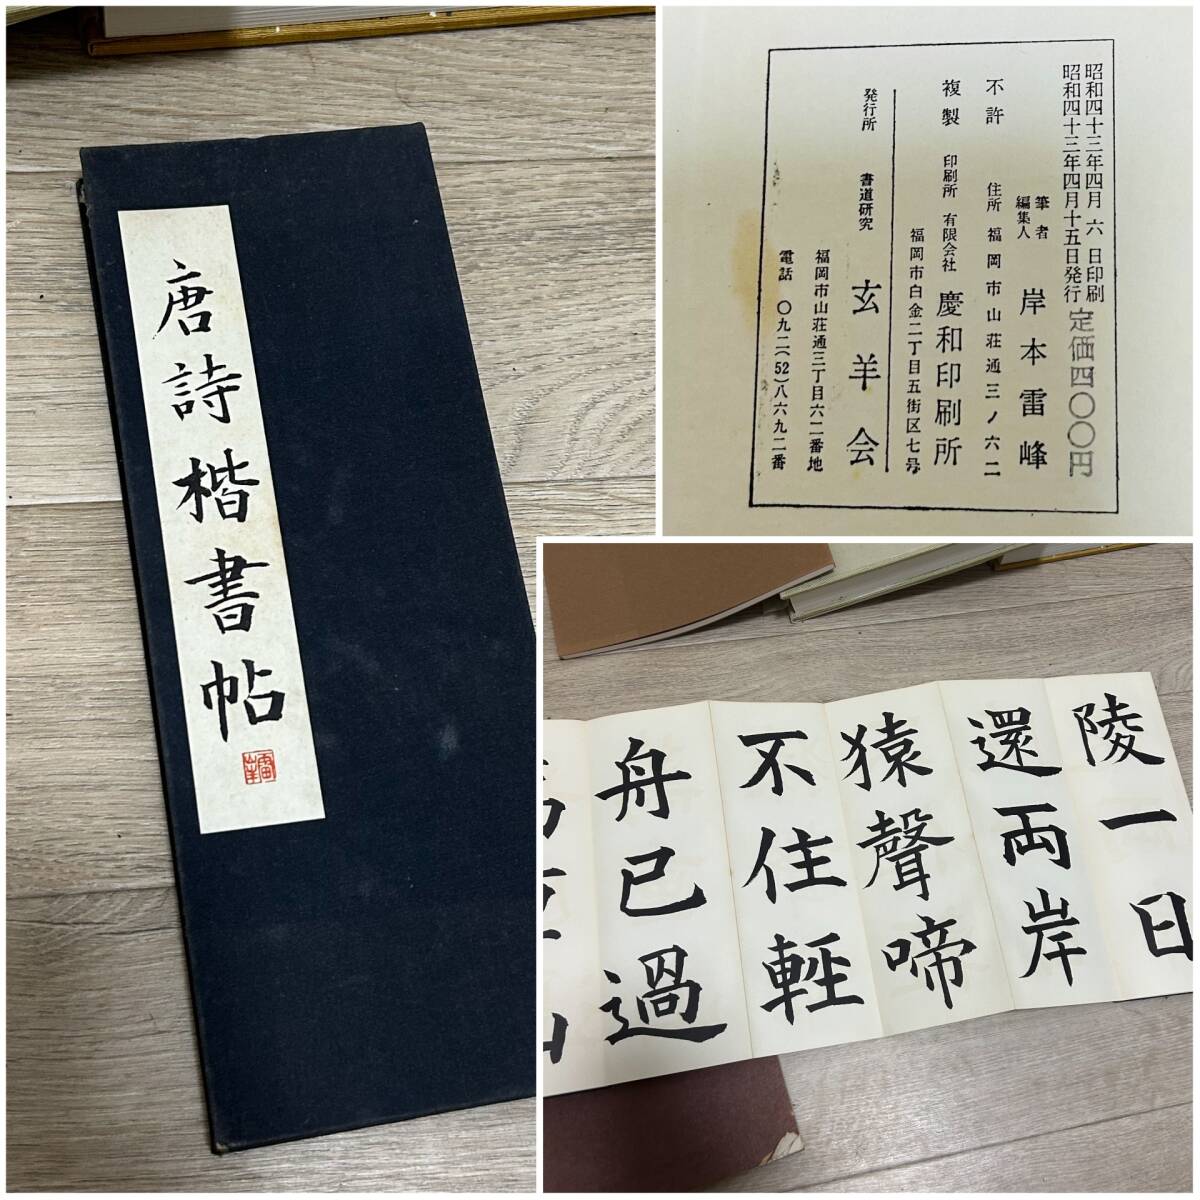 唐詩楷書帖
昭和四十三年四月六日印刷
昭和四十三年四月十五日発行
定価四〇〇円
筆者
編集人
岸本雷峰
住所 福岡市山荘通三ノ六二
不許
複製
印刷所 有限会社 慶和印刷所
福岡市白金二丁目五街区七号
発行所 書道研究 玄羊会
福岡市山荘通三丁目六二番地
電話 〇九二(52)八六九二番
陵一日
還両岸
猿聲啼
不住輕
舟已過